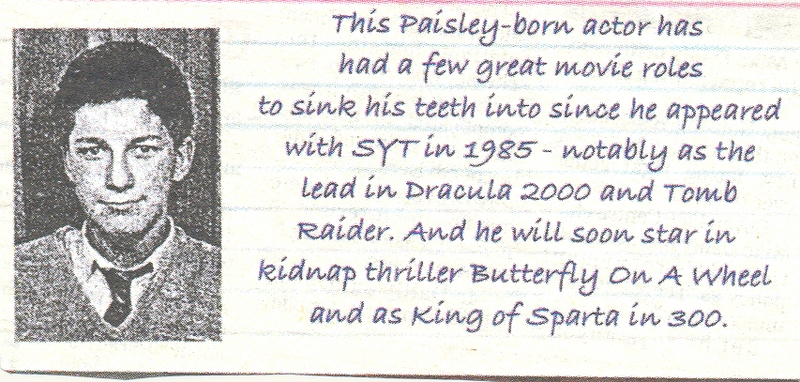 This Paisley-born actor has
had a few great movie roles
to sink his teeth into since he appeared
with SYT in 1985 - notably as the
lead in Dracula 2000 and Tomb
Raider. And he will soon star in
kidnap thriller Butterfly On A Wheel
and as King of Sparta in 300.